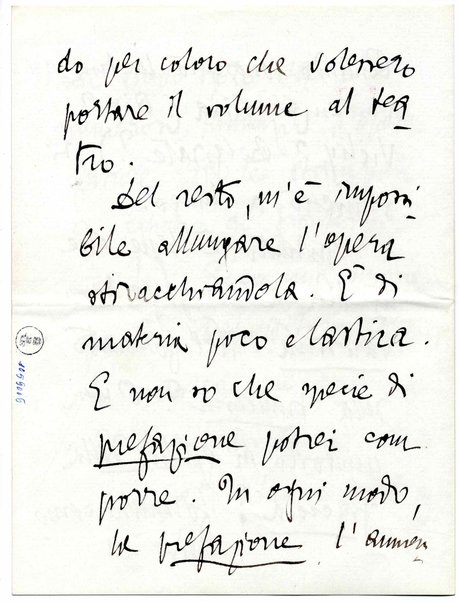 do per coloro che volessero
portare il volume al tea
tro.
Del resto, m'è impossi
bile allungare l'opera
stiracchiandola. È di
materia poco elastica.
E non so che specie di
prefazione potrei com
porre. In ogni modo,
la prefazione l'aumen